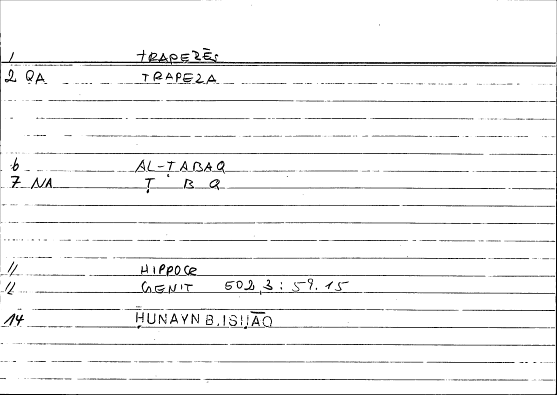 1 TRAPEZĒS
2 QA TRAPEZA
6 AL-ṬABAQ
7 NA Ṭ B Q
11 HIPPOCR
12 GENIT 502,3 : 59.15
14 ḤUNAYN B. ISḤĀQ